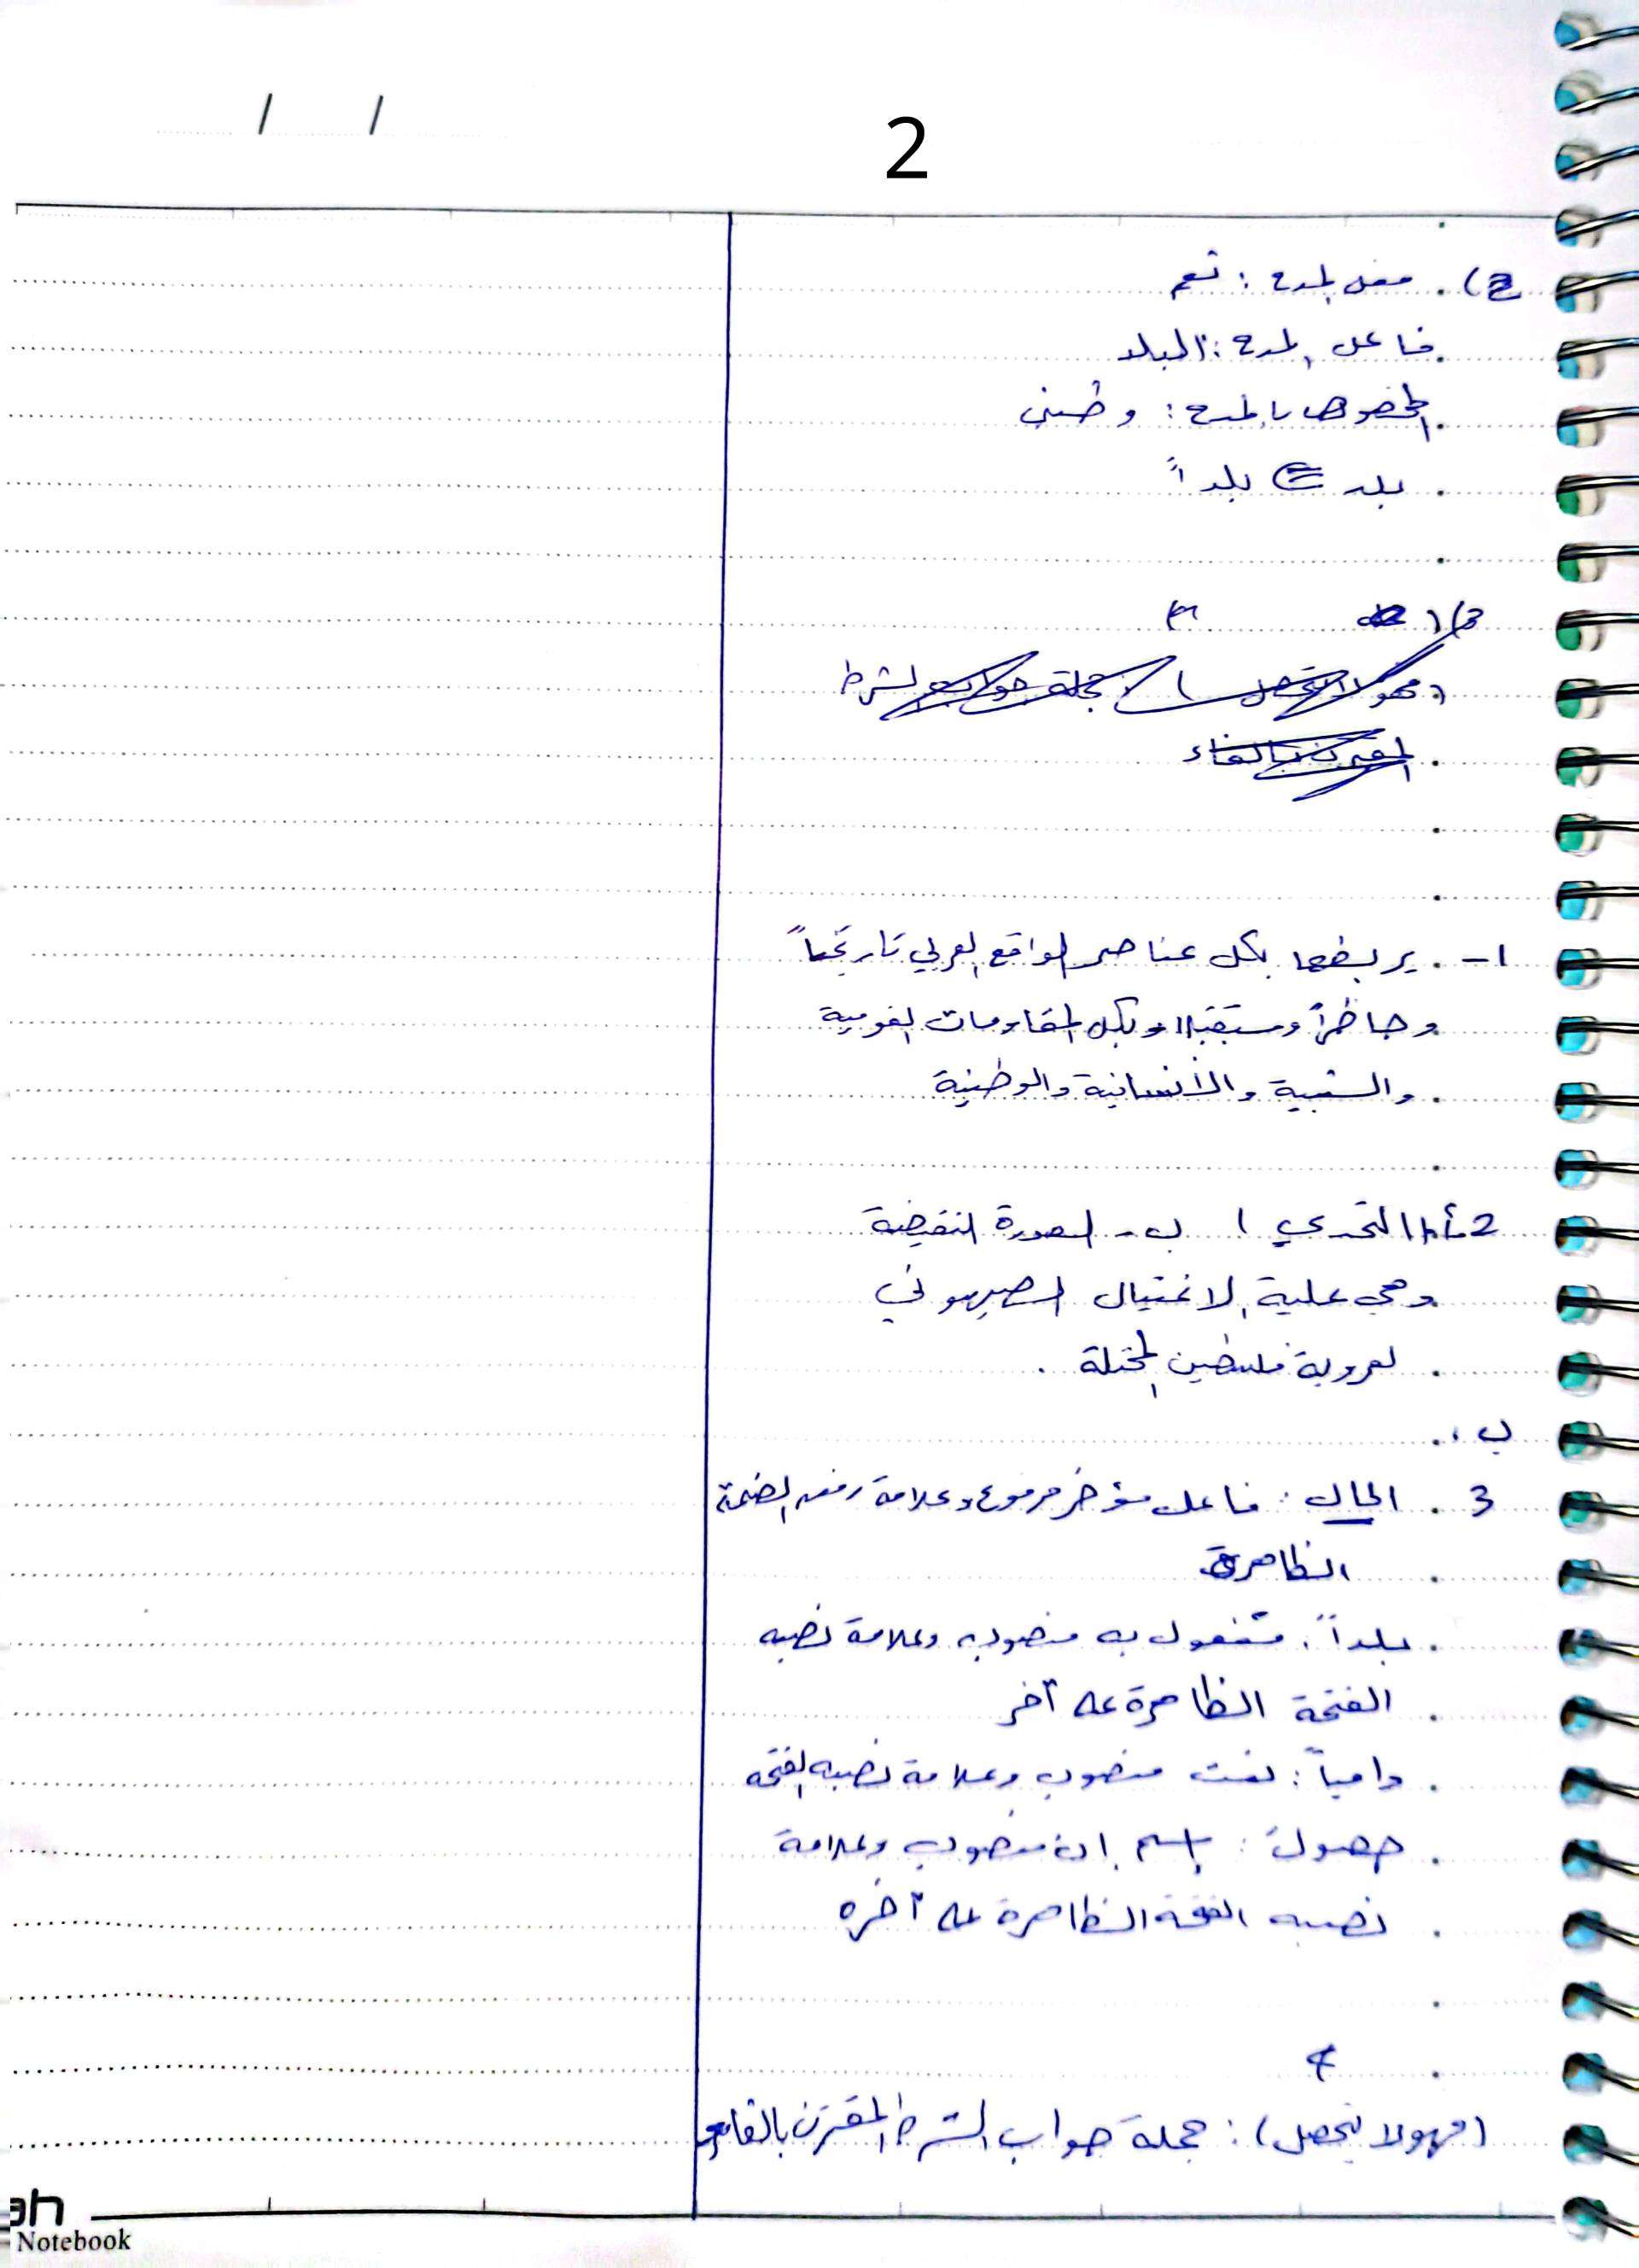 / /
2
ج) فعل المدح : نعم
فاعل المدح : البلد
المخصوص بالمدح : وطني
بلد بلداً
م) ١ م
فهو لا يحصل جملة جواب الشرط
المقترن بالفاء
١- يربطها بكل عناصر الواقع العربي تاريخياً
وحاظراً ومستقبلا وبكل المقاومات القومية
والشعبية والأنسانية والوطنية
2 أ/ ١ التحدي ب- الصورة النقيضة
وهي علية الاغتيال الصهيوني
لعروبة فلسطين المحتلة .
ب.
3 المال : فاعل مؤخر مرفوع وعلامة رفعه الضمة
الظاهرة
بلداً : مفعول به منصوب وعلامة نصبه
الفتحة الظاهرة على آخر
دامياً : نعت منصوب وعلامة نصبه الفتحه
حصول : إسم إن منصوب وعلامة
نصبه الفتحة الظاهرة على آخره
4
(فهو لا يحصل) : جملة جواب الشرط المقترن بالفاء
ah
Notebook